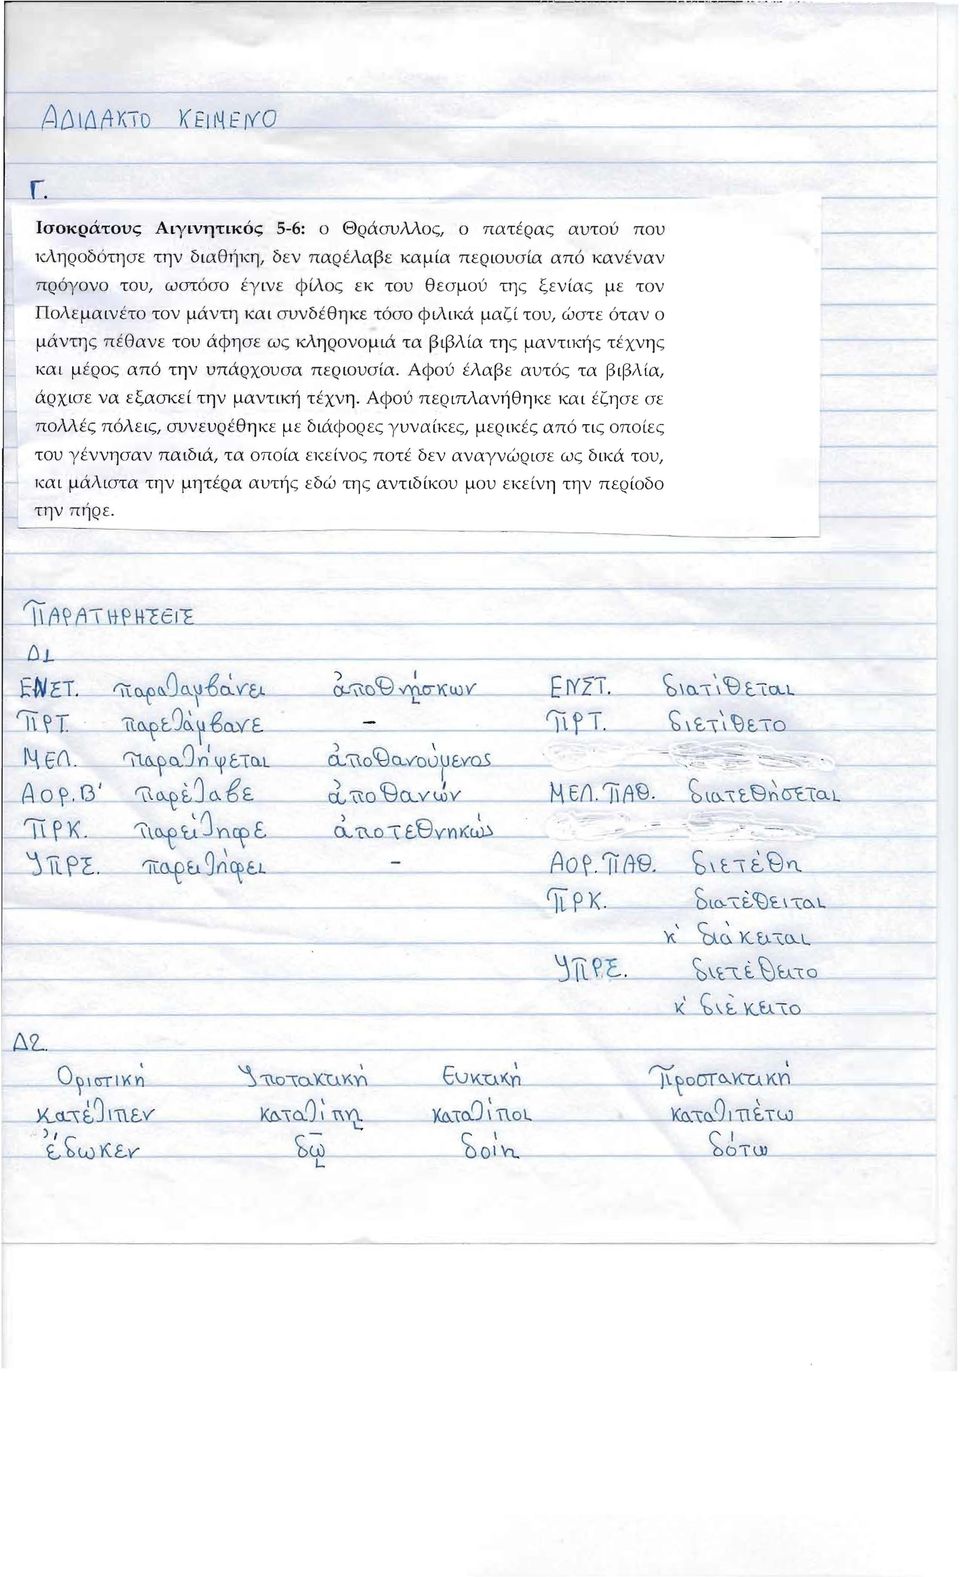 ΑΔΙΔΑΚΤΟ ΚΕΙΜΕΝΟ
Γ.
Ισοκράτους Αιγινητικός 5-6: ο Θράσυλλος, ο πατέρας αυτού που
κληροδότησε την διαθήκη, δεν παρέλαβε καμία περιουσία από κανέναν
πρόγονο του, ωστόσο έγινε φίλος εκ του θεσμού της ξενίας με τον
Πολεμαινέτο τον μάντη και συνδέθηκε τόσο φιλικά μαζί του, ώστε όταν ο
μάντης πέθανε του άφησε ως κληρονομιά τα βιβλία της μαντικής τέχνης
και μέρος από την υπάρχουσα περιουσία. Αφού έλαβε αυτός τα βιβλία,
άρχισε να εξασκεί την μαντική τέχνη. Αφού περιπλανήθηκε και έζησε σε
πολλές πόλεις, συνευρέθηκε με διάφορες γυναίκες, μερικές από τις οποίες
του γέννησαν παιδιά, τα οποία εκείνος ποτέ δεν αναγνώρισε ως δικά του,
και μάλιστα την μητέρα αυτής εδώ της αντιδίκου μου εκείνη την περίοδο
την πήρε.
ΠΑΡΑΤΗΡΗΣΕΙΣ
Δ1
ΕΝΕΣΤ. παραλαμβάνει ἀποθνῄσκων ΕΝΣΤ. διατίθεται
ΠΡΤ. παρελάμβανε – ΠΡΤ. διετίθετο
ΜΕΛ. παραλήψεται ἀποθανούμενος
ΑΟΡ.Β' παρέλαβε ἀποθανών ΜΕΛ.ΠΑΘ. διατεθήσεται
ΠΡΚ. παρείληφε ἀποτεθνηκώς
ΥΠΡΣ. παρειλήφει – ΑΟΡ.ΠΑΘ. διετέθη
ΠΡΚ. διατέθειται
κ' διάκειται
ΥΠΡΣ. διετέθειτο
κ' διέκειτο
Δ2.
Οριστική Υποτακτική Ευκτική Προστακτική
κατέλιπεν καταλίπῃ καταλίποι καταλιπέτω
ἔδωκεν δῷ δοίη δότω